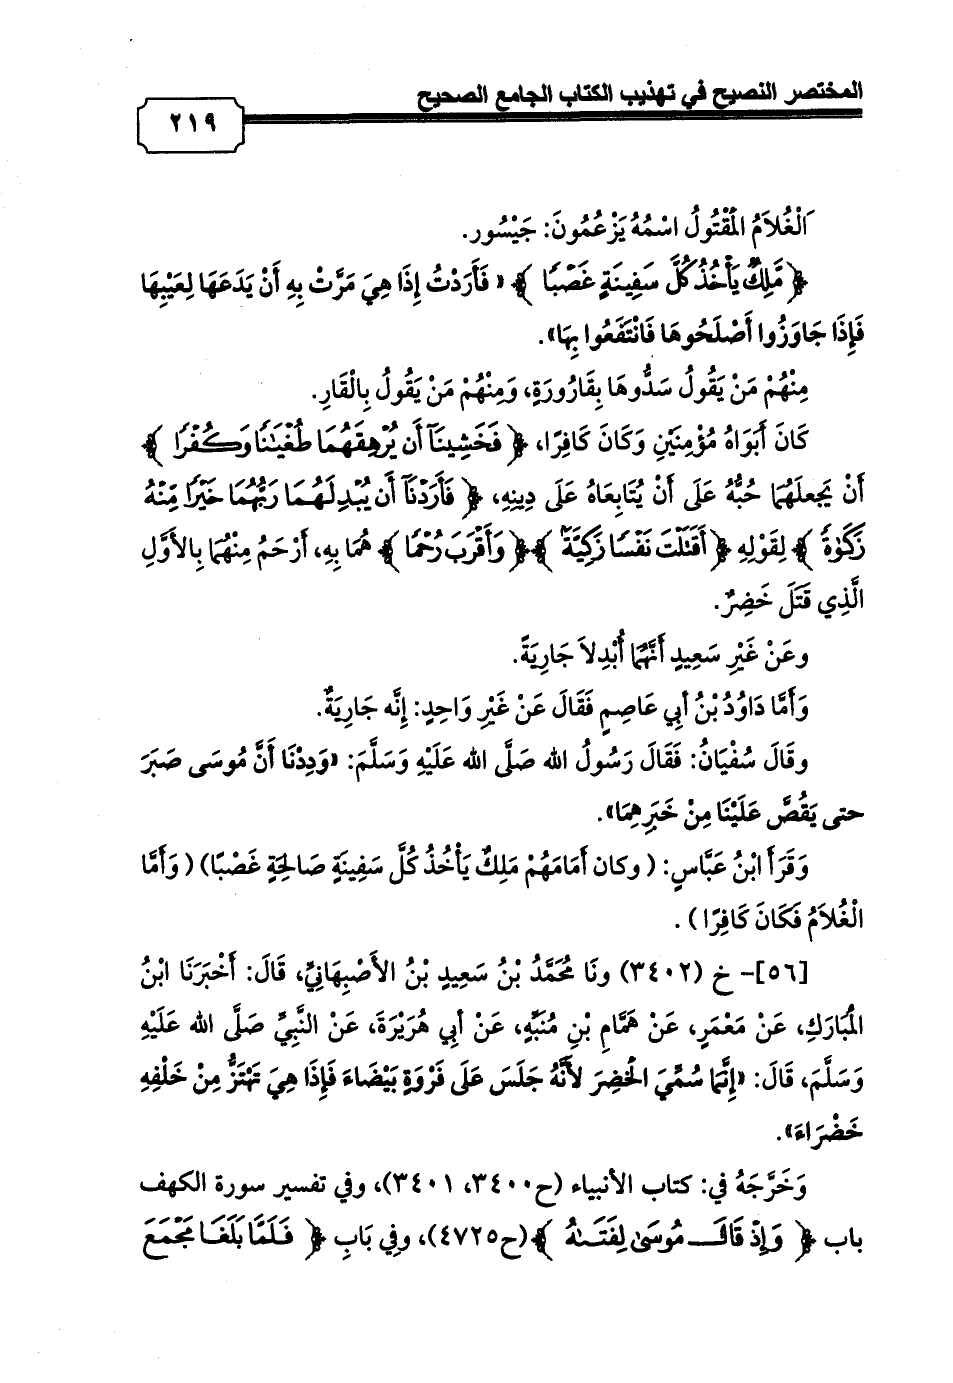 المختصر النصيح في تهذيب الكتاب الجامع الصحيح
٢١٩
اَلْغُلاَمُ المَقْتُولُ اسْمُهُ يَزْعُمُونَ: جَيْسُور.
﴿مَّلِكٌ يَأْخُذُ كُلَّ سَفِينَةٍ غَصْبًا ﴾ « فَأَرَدْتُ إِذَا هِيَ مَرَّتْ بِهِ أَنْ يَدَعَهَا لِعَيْبِهَا
فَإِذَا جَاوَزُوا أَصْلَحُوهَا فَانْتَفَعُوا بِهَا».
مِنْهُمْ مَنْ يَقُولُ سَدُّوهَا بِقَارُورَةٍ، وَمِنْهُمْ مَنْ يَقُولُ بِالْقَارِ.
كَانَ أَبَوَاهُ مُؤْمِنَيْنِ وَكَانَ كَافِرًا، ﴿ فَخَشِينَآ أَن يُرْهِقَهُمَا طُغْيَٰنًا وَكُفْرًا ﴾
أَنْ يَحْمِلَهُمَا حُبُّهُ عَلَى أَنْ يُتَابِعَاهُ عَلَى دِينِهِ، ﴿ فَأَرَدْنَآ أَن يُبْدِلَهُمَا رَبُّهُمَا خَيْرًا مِّنْهُ
زَكَوٰةً ﴾ لِقَوْلِهِ ﴿ أَقَتَلْتَ نَفْسًا زَكِيَّةً ﴾ ﴿ وَأَقْرَبَ رُحْمًا ﴾ هُمَا بِهِ، أَرْحَمُ مِنْهُمَا بِالأَوَّلِ
الَّذِي قَتَلَ خَضِرٌ.
وعَنْ غَيْرِ سَعِيدٍ أَنَّهُمَا أُبْدِلاَ جَارِيَةً.
وَأَمَّا دَاوُدُ بْنُ أبِي عَاصِمٍ فَقَالَ عَنْ غَيْرِ وَاحِدٍ: إِنَّه جَارِيَةٌ.
وقَالَ سُفْيَانُ: فَقَالَ رَسُولُ الله صَلَّى الله عَلَيْهِ وَسَلَّمَ: «وَدِدْنَا أَنَّ مُوسَى صَبَرَ
حتى يَقُصَّ عَلَيْنَا مِنْ خَبَرِهِمَا».
وَقَرَأَ ابْنُ عَبَّاسٍ: ( وكان أَمَامَهُمْ مَلِكٌ يَأْخُذُ كُلَّ سَفِينَةٍ صَالِحَةٍ غَصْبًا) ( وَأَمَّا
الْغُلاَمُ فَكَانَ كَافِرًا ) .
[٥٦]- خ (٣٤٠٢) ونَا مُحَمَّدُ بْنُ سَعِيدٍ بْنُ الأَصْبِهَانِيِّ، قَالَ: أَخْبَرَنَا ابْنُ
المُبَارَكِ، عَنْ مَعْمَرٍ، عَنْ هَمَّامِ بْنِ مُنَبِّهٍ، عَنْ أبِي هُرَيْرَةَ، عَنْ النَّبِيِّ صَلَّى الله عَلَيْهِ
وَسَلَّمَ، قَالَ: «إِنَّمَا سُمِّيَ الخَضِرَ لأَنَّهُ جَلَسَ عَلَى فَرْوَةٍ بَيْضَاءَ فَإِذَا هِيَ تَهْتَزُّ مِنْ خَلْفِهِ
خَضْرَاءَ».
وَخَرَّجَهُ في: كتاب الأنبياء (ح٣٤٠٠، ٣٤٠١)، وفي تفسير سورة الكهف
باب ﴿ وَإِذْ قَالَ مُوسَىٰ لِفَتَىٰهُ ﴾ (ح٤٧٢٥)، وفِي بَابِ ﴿ فَلَمَّا بَلَغَا مَجْمَعَ